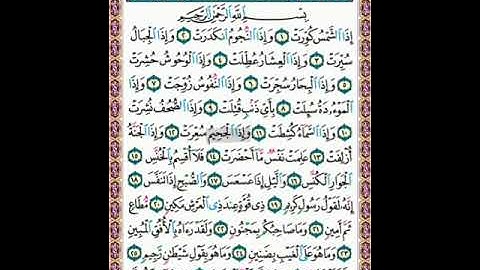 بِسْمِ اللَّهِ الرَّحْمَٰنِ الرَّحِيمِ
إِذَا الشَّمْسُ كُوِّرَتْ ١ وَإِذَا النُّجُومُ انكَدَرَتْ ٢ وَإِذَا الْجِبَالُ
سُيِّرَتْ ٣ وَإِذَا الْعِشَارُ عُطِّلَتْ ٤ وَإِذَا الْوُحُوشُ حُشِرَتْ
٥ وَإِذَا الْبِحَارُ سُجِّرَتْ ٦ وَإِذَا النُّفُوسُ زُوِّجَتْ ٧ وَإِذَا
الْمَوْءُۥدَةُ سُئِلَتْ ٨ بِأَيِّ ذَنبٍ قُتِلَتْ ٩ وَإِذَا الصُّحُفُ نُشِرَتْ
١٠ وَإِذَا السَّمَاءُ كُشِطَتْ ١١ وَإِذَا الْجَحِيمُ سُعِّرَتْ ١٢ وَإِذَا الْجَنَّةُ
أُزْلِفَتْ ١٣ عَلِمَتْ نَفْسٌ مَّا أَحْضَرَتْ ١٤ فَلَا أُقْسِمُ بِالْخُنَّسِ ١٥
الْجَوَارِ الْكُنَّسِ ١٦ وَاللَّيْلِ إِذَا عَسْعَسَ ١٧ وَالصُّبْحِ إِذَا تَنَفَّسَ ١٨
إِنَّهُ لَقَوْلُ رَسُولٍ كَرِيمٍ ١٩ ذِي قُوَّةٍ عِندَ ذِي الْعَرْشِ مَكِينٍ ٢٠ مُّطَاعٍ
ثَمَّ أَمِينٍ ٢١ وَمَا صَاحِبُكُم بِمَجْنُونٍ ٢٢ وَلَقَدْ رَءَاهُ بِالْأُفُقِ الْمُبِينِ
٢٣ وَمَا هُوَ عَلَى الْغَيْبِ بِضَنِينٍ ٢٤ وَمَا هُوَ بِقَوْلِ شَيْطَٰنٍ رَّجِيمٍ ٢٥